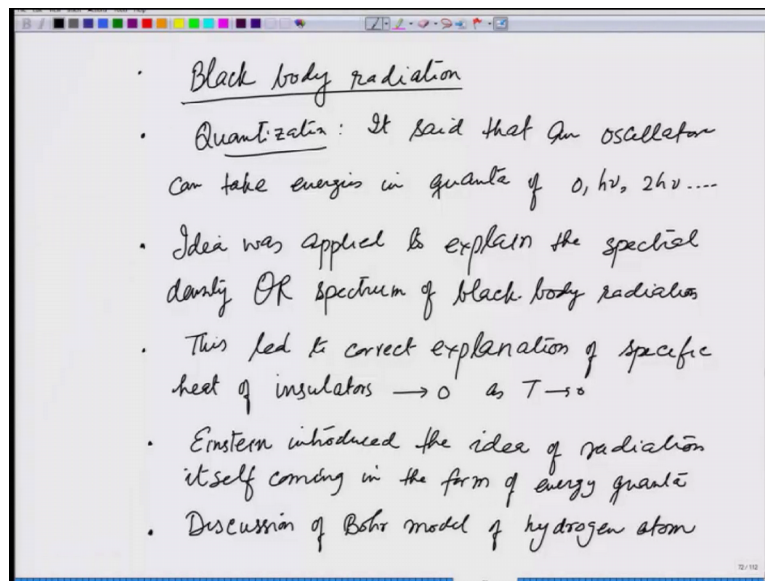 · Black body radiation
· Quantization : It said that an oscillator
can take energies in quanta of 0, hν, 2hν ....
· Idea was applied to explain the spectral
density OR spectrum of black body radiation
· This led to correct explanation of specific
heat of insulators → 0 as T → 0
· Einstein introduced the idea of radiation
itself coming in the form of energy quanta
· Discussion of Bohr model of hydrogen atom
72 / 112